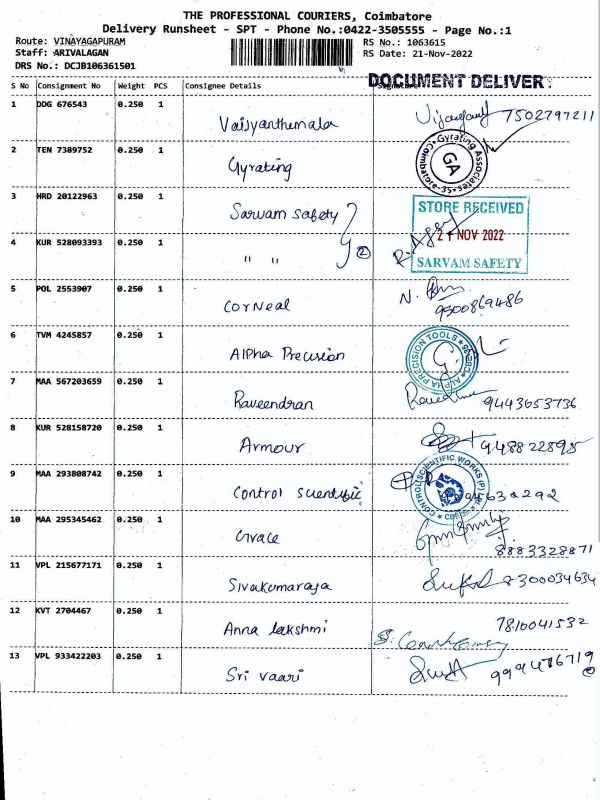 THE PROFESSIONAL COURIERS, Coimbatore
Delivery Runsheet - SPT - Phone No.:0422-3505555 - Page No.:1
Route: VINAYAGAPURAM
RS No.: 1063615
Staff: ARIVALAGAN
RS Date: 21-Nov-2022
DRS No.: DCJB106361501
DOCUMENT DELIVER
S No Consignment No Weight PCS Consignee Details Signature
1 DDG 676543 0.250 1 Vaijyanthimala 7502797211
2 TEN 7389752 0.250 1 Gyrating
Gyrating Associates Coimbatore-35 GA
3 HRD 20122963 0.250 1 Sarvam safety
STORE RECEIVED
21 NOV 2022
SARVAM SAFETY
4 KUR 528093393 0.250 1 " " 2
5 POL 2553907 0.250 1 Corneal 9500869486
6 TVM 4245857 0.250 1 Alpha Precision
ALPHA PRECISION TOOLS
7 MAA 567203659 0.250 1 Raveendran 9443653736
8 KUR 528158720 0.250 1 Armour
9 MAA 293808742 0.250 1 Control scientific
CONTROL SCIENTIFIC WORKS (P)
10 MAA 295345462 0.250 1 Grace 8883328871
11 VPL 215677171 0.250 1 Sivakumaraja 8300034634
12 KVT 2704467 0.250 1 Anna lakshmi 7810041532
13 VPL 933422203 0.250 1 Sri vaari